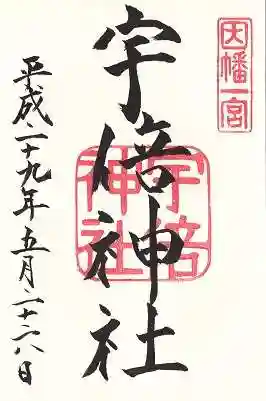 因幡一宮
宇倍神社
宇倍神社
平成二十九年五月二十六日